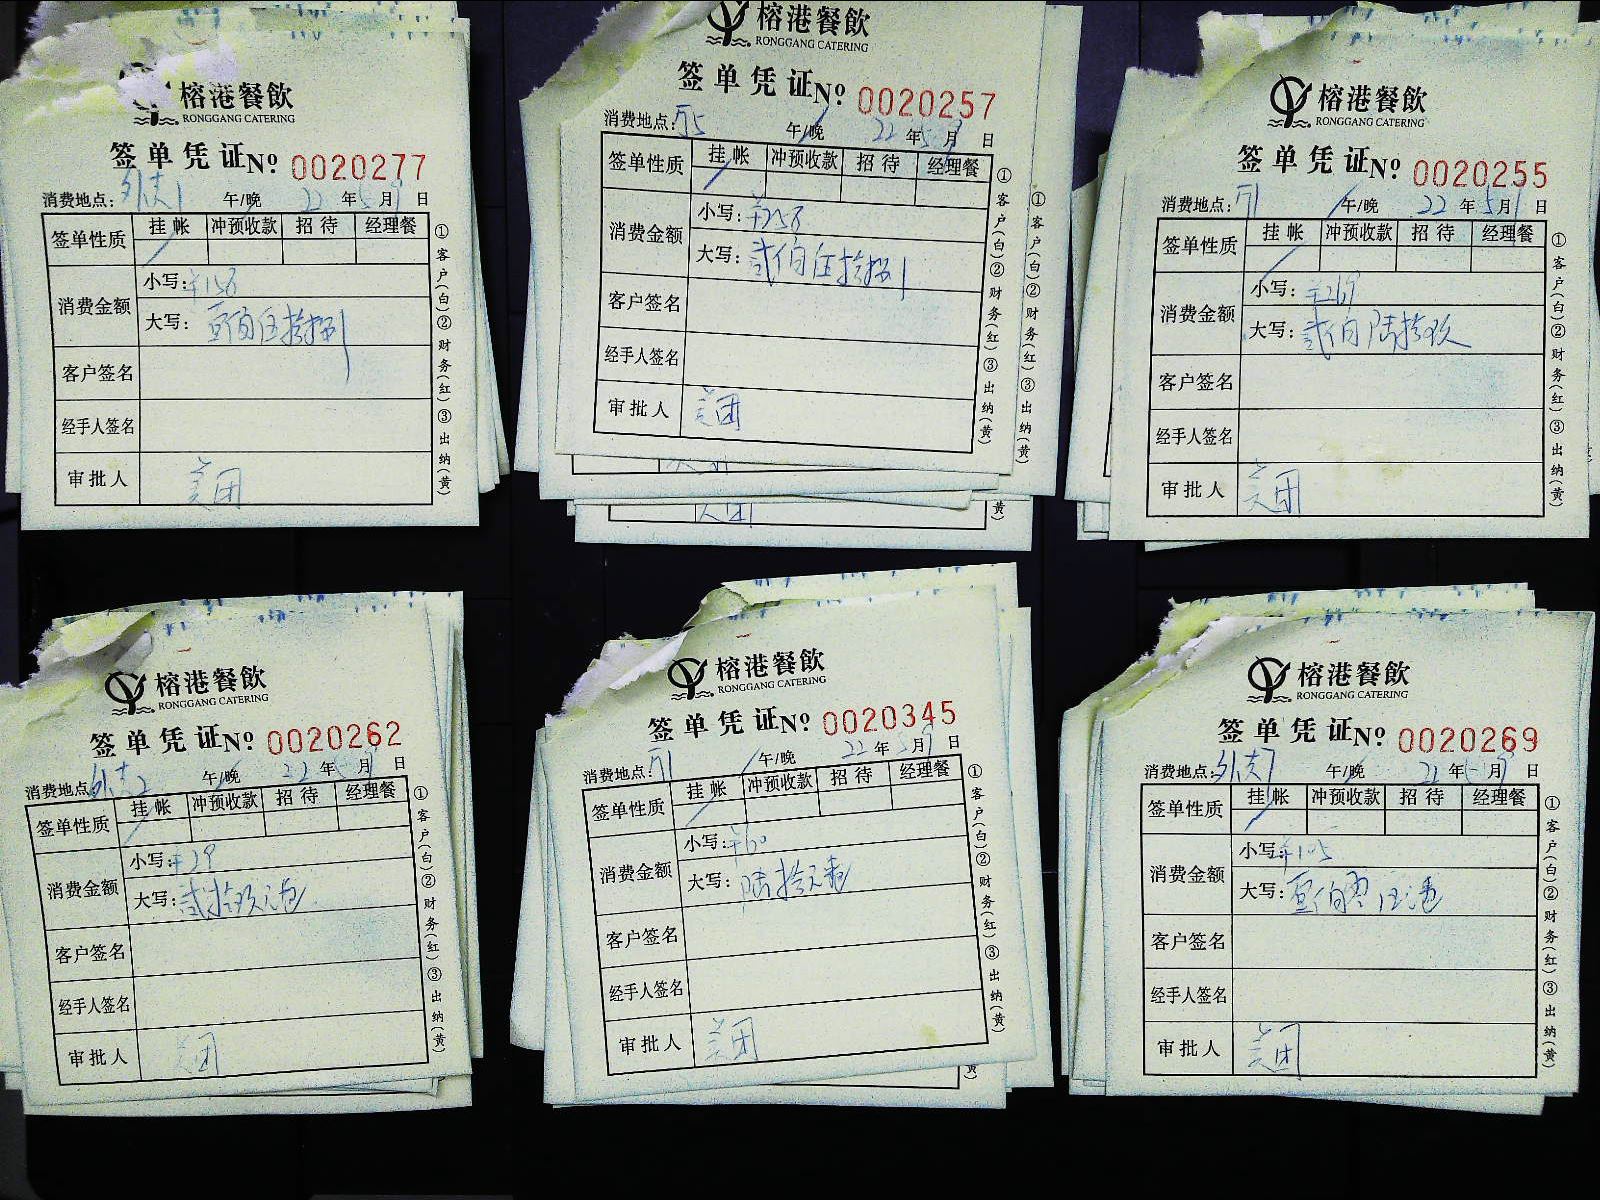 榕港餐飲
RONGGANG CATERING
签单凭证 Nº 0020277
消费地点: 外卖1 午/晚 22年5月9日
签单性质 挂帐 冲预收款 招待 经理餐
消费金额 小写: ¥158
大写: 壹佰伍拾捌
客户签名
经手人签名
审批人 美团
①客户(白)②财务(红)③出纳(黄)
榕港餐飲
RONGGANG CATERING
签单凭证 Nº 0020257
消费地点: 午/晚 22年5月9日
签单性质 挂帐 冲预收款 招待 经理餐
消费金额 小写: ¥258
大写: 贰佰伍拾捌
客户签名
经手人签名
审批人 美团
①客户(白)②财务(红)③出纳(黄)
①客户(白)②财务(红)③出纳(黄)
黄)
榕港餐飲
RONGGANG CATERING
签单凭证 Nº 0020255
消费地点: 午/晚 22年5月日
签单性质 挂帐 冲预收款 招待 经理餐
消费金额 小写: ¥269
大写: 贰佰陆拾玖
客户签名
经手人签名
审批人 美团
①客户(白)②财务(红)③出纳(黄)
榕港餐飲
RONGGANG CATERING
签单凭证 Nº 0020262
消费地点: 外卖2 午/晚 22年5月9日
签单性质 挂帐 冲预收款 招待 经理餐
消费金额 小写: ¥29
大写: 贰拾玖元
客户签名
经手人签名
审批人 美团
①客户(白)②财务(红)③出纳(黄)
榕港餐飲
RONGGANG CATERING
签单凭证 Nº 0020345
消费地点: 午/晚 22年5月9日
签单性质 挂帐 冲预收款 招待 经理餐
消费金额 小写: ¥60
大写: 陆拾元
客户签名
经手人签名
审批人 美团
①客户(白)②财务(红)③出纳(黄)
黄)
榕港餐飲
RONGGANG CATERING
签单凭证 Nº 0020269
消费地点: 外卖7 午/晚 22年5月9日
签单性质 挂帐 冲预收款 招待 经理餐
消费金额 小写: ¥105
大写: 壹佰零伍元
客户签名
经手人签名
审批人 美团
①客户(白)②财务(红)③出纳(黄)